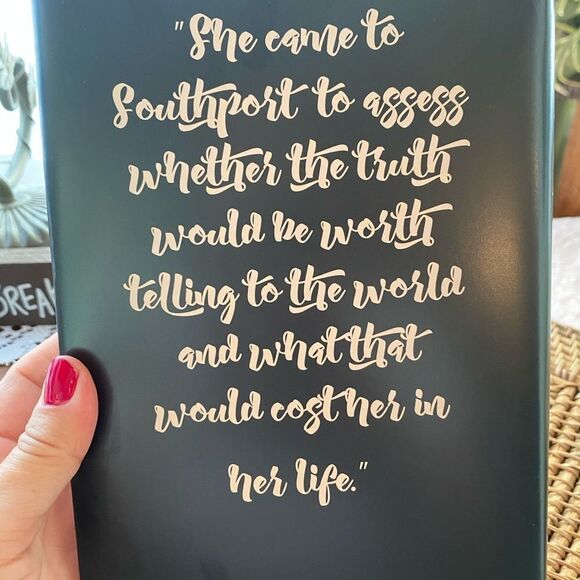 "She came to
Southport to assess
whether the truth
would be worth
telling to the world
and what that
would cost her in
her life."